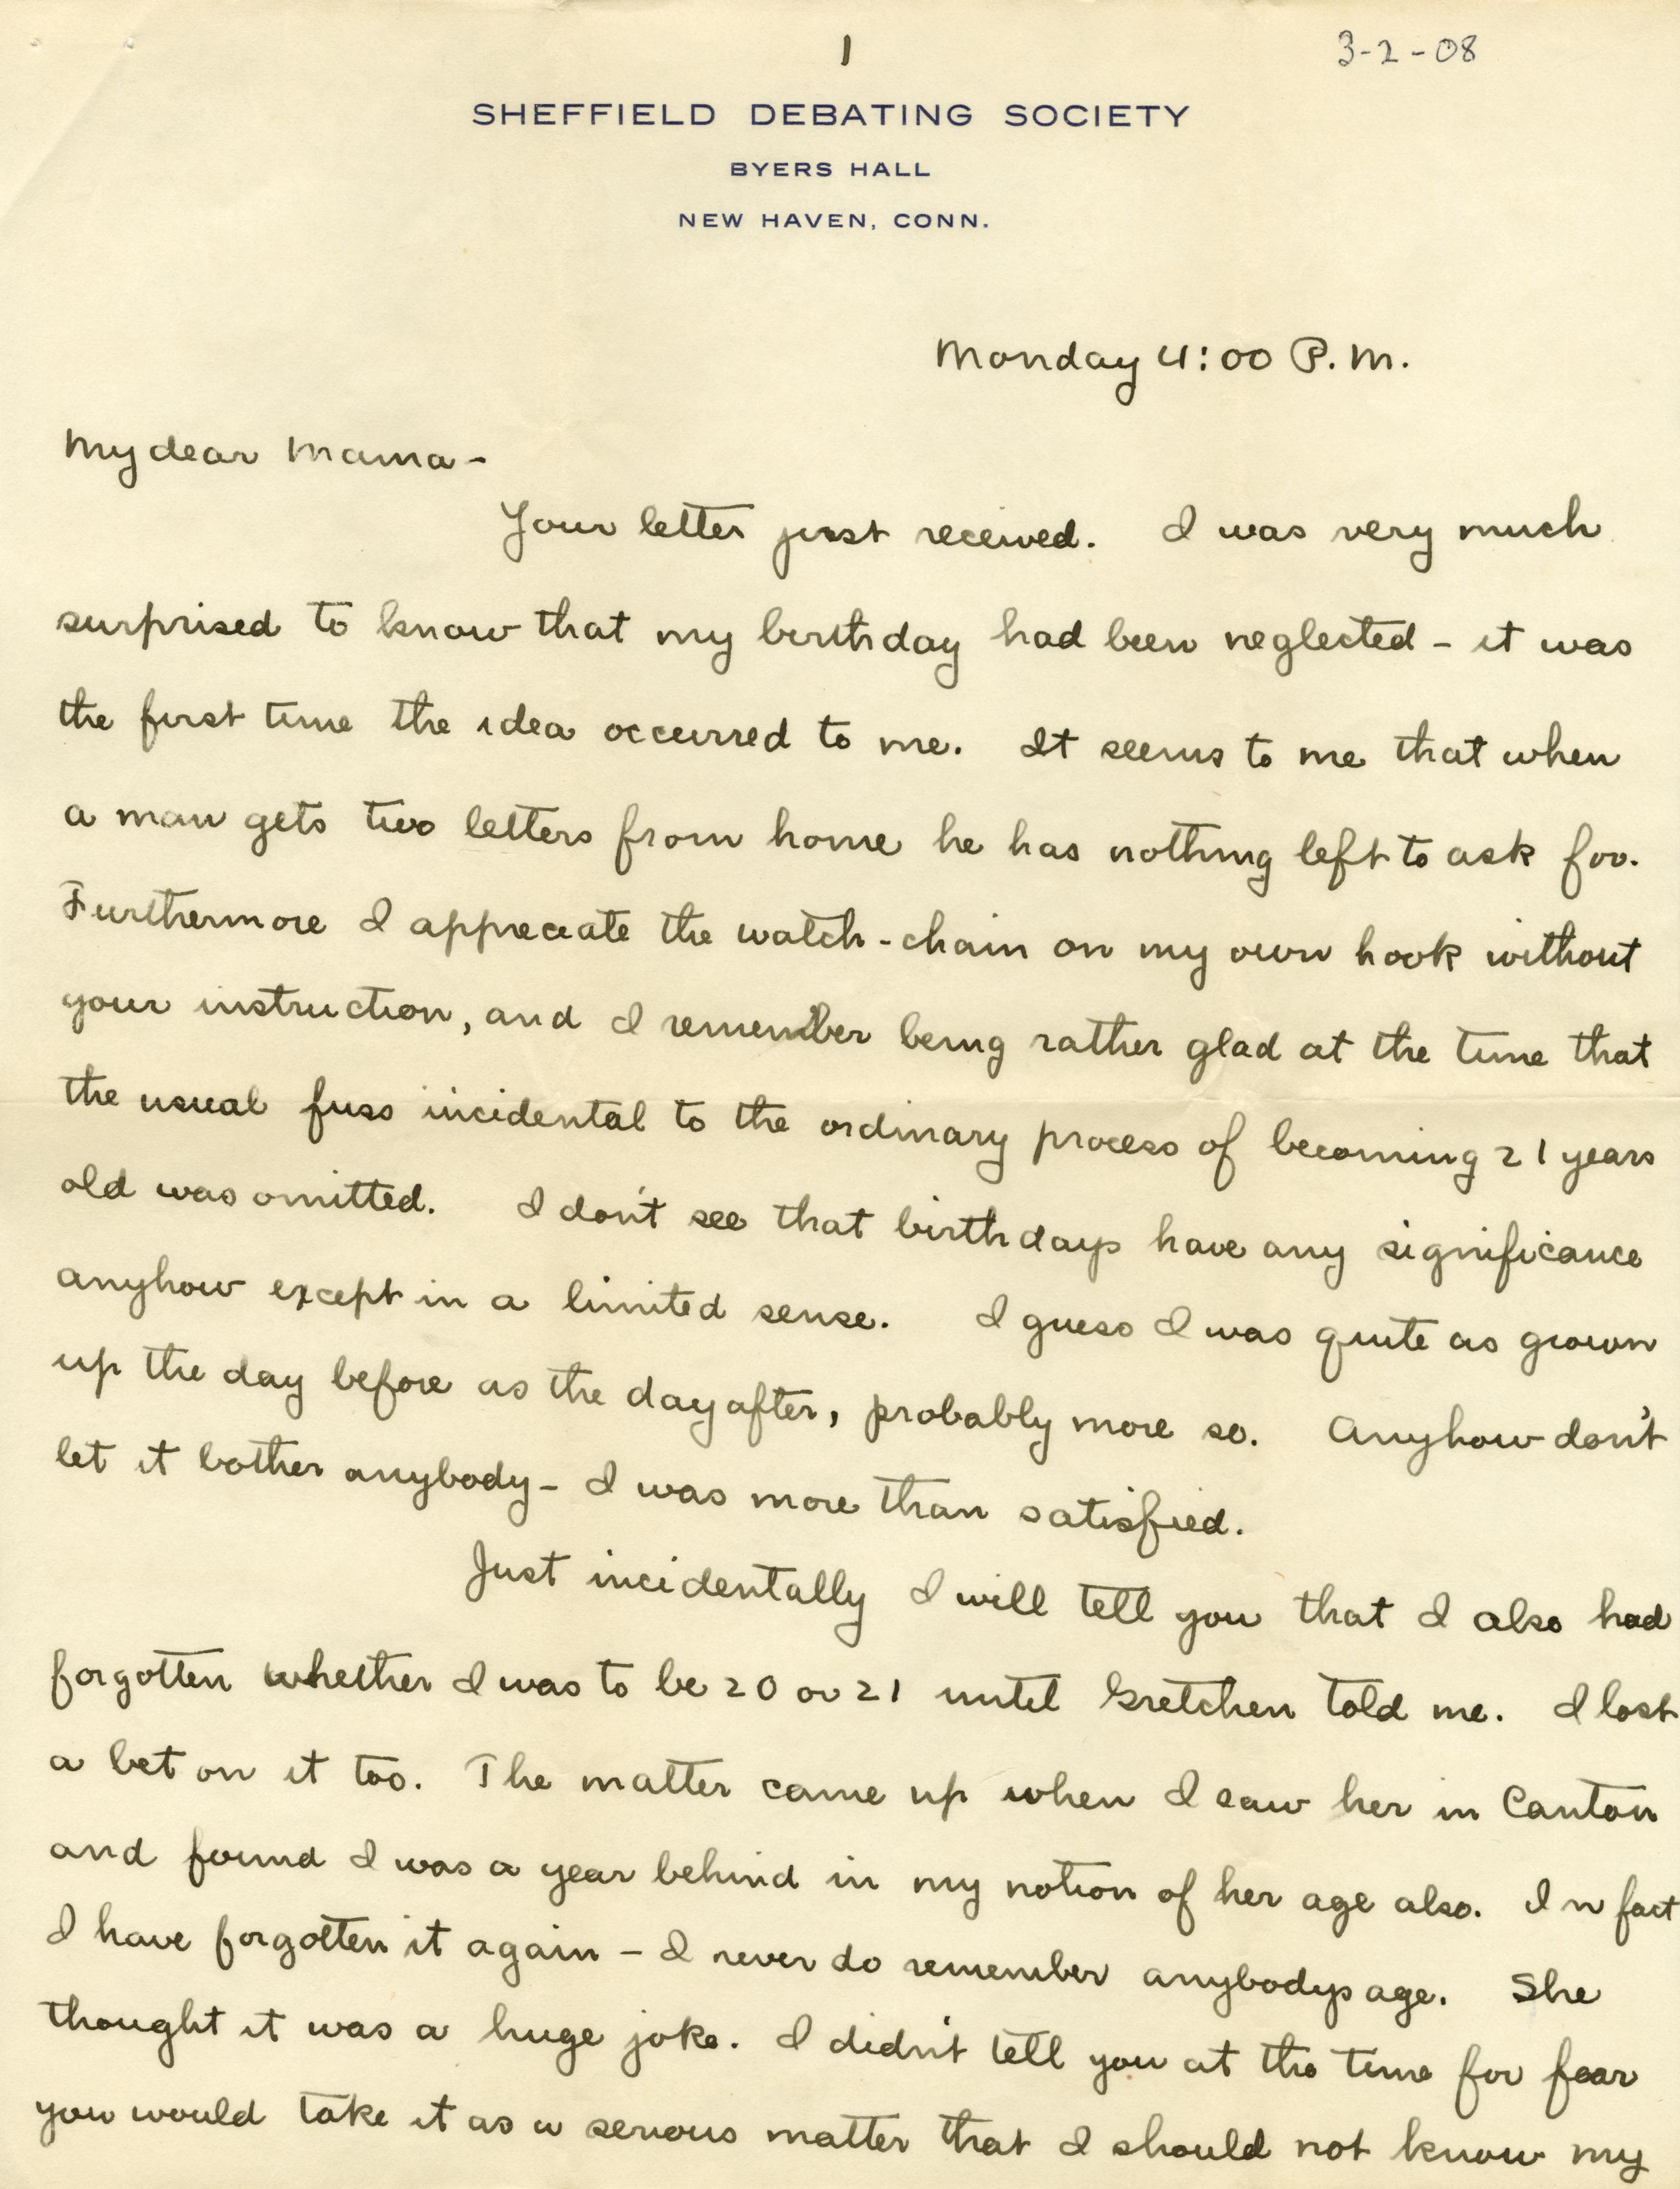 1
3-2-08
SHEFFIELD DEBATING SOCIETY
BYERS HALL
NEW HAVEN, CONN.
Monday 4:00 P.M.
My dear Mama -
Your letter just received. I was very much
surprised to know that my birthday had been neglected - it was
the first time the idea occurred to me. It seems to me that when
a man gets two letters from home he has nothing left to ask for.
Furthermore I appreciate the watch-chain on my own hook without
your instruction, and I remember being rather glad at the time that
the usual fuss incidental to the ordinary process of becoming 21 years
old was omitted. I don't see that birthdays have any significance
anyhow except in a limited sense. I guess I was quite as grown
up the day before as the day after, probably more so. Anyhow don't
let it bother anybody - I was more than satisfied.
Just incidentally I will tell you that I also had
forgotten whether I was to be 20 or 21 until Gretchen told me. I lost
a bet on it too. The matter came up when I saw her in Canton
and found I was a year behind in my notion of her age also. In fact
I have forgotten it again - I never do remember anybodys age. She
thought it was a huge joke. I didn't tell you at the time for fear
you would take it as a serious matter that I should not know my